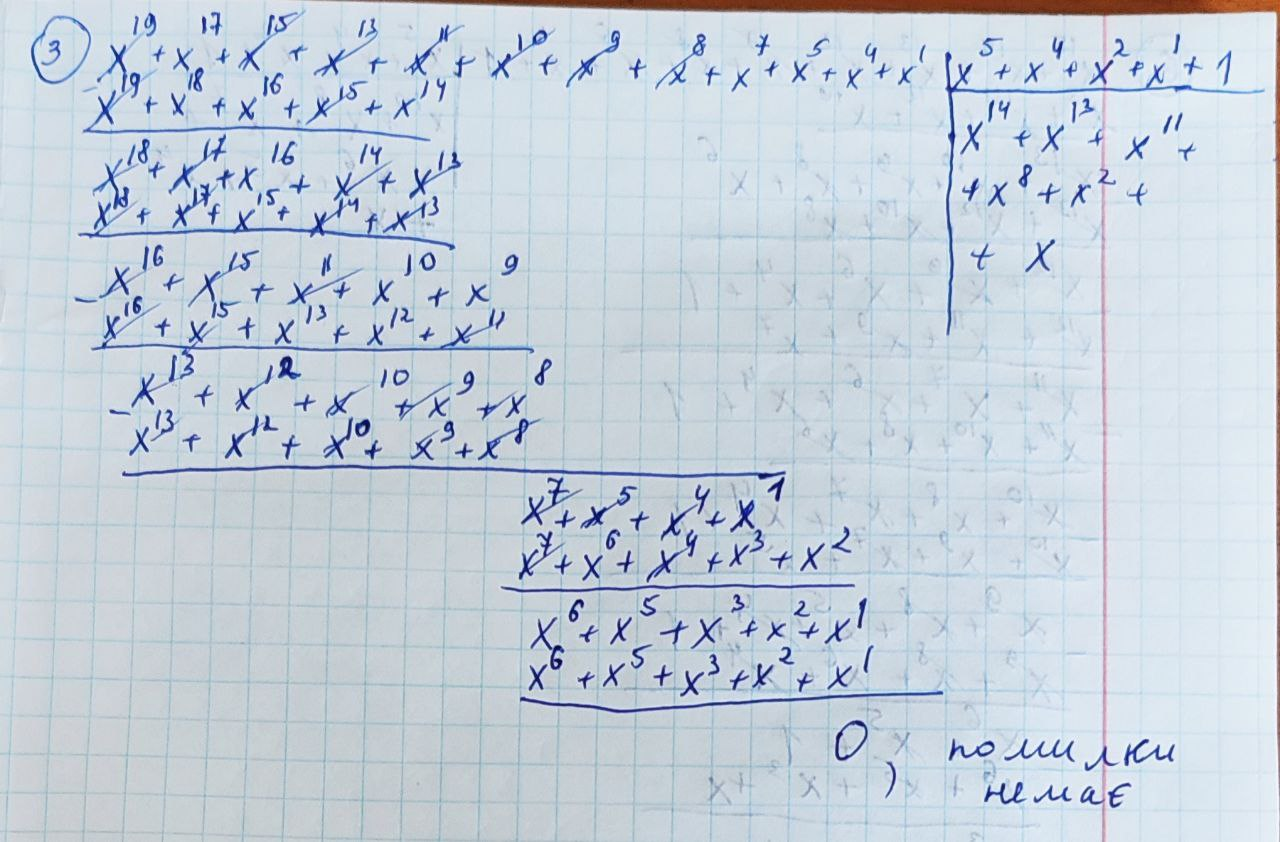 ③ x¹⁹ + x¹⁷ + x¹⁵ + x¹³ + x¹¹ + x¹⁰ + x⁹ + x⁸ + x⁷ + x⁵ + x⁴ + x¹ | x⁵ + x⁴ + x² + x¹ + 1
x¹⁹ + x¹⁸ + x¹⁶ + x¹⁵ + x¹⁴
x¹⁴ + x¹³ + x¹¹ +
x¹⁸ + x¹⁷ + x¹⁶ + x¹⁴ + x¹³
+ x⁸ + x² +
x¹⁸ + x¹⁷ + x¹⁵ + x¹⁴ + x¹³
+ x
- x¹⁶ + x¹⁵ + x¹¹ + x¹⁰ + x⁹
x¹⁶ + x¹⁵ + x¹³ + x¹² + x¹¹
- x¹³ + x¹² + x¹⁰ + x⁹ + x⁸
x¹³ + x¹² + x¹⁰ + x⁹ + x⁸
x⁷ + x⁵ + x⁴ + x¹
x⁷ + x⁶ + x⁴ + x³ + x²
x⁶ + x⁵ + x³ + x² + x¹
x⁶ + x⁵ + x³ + x² + x¹
0, помилки
немає